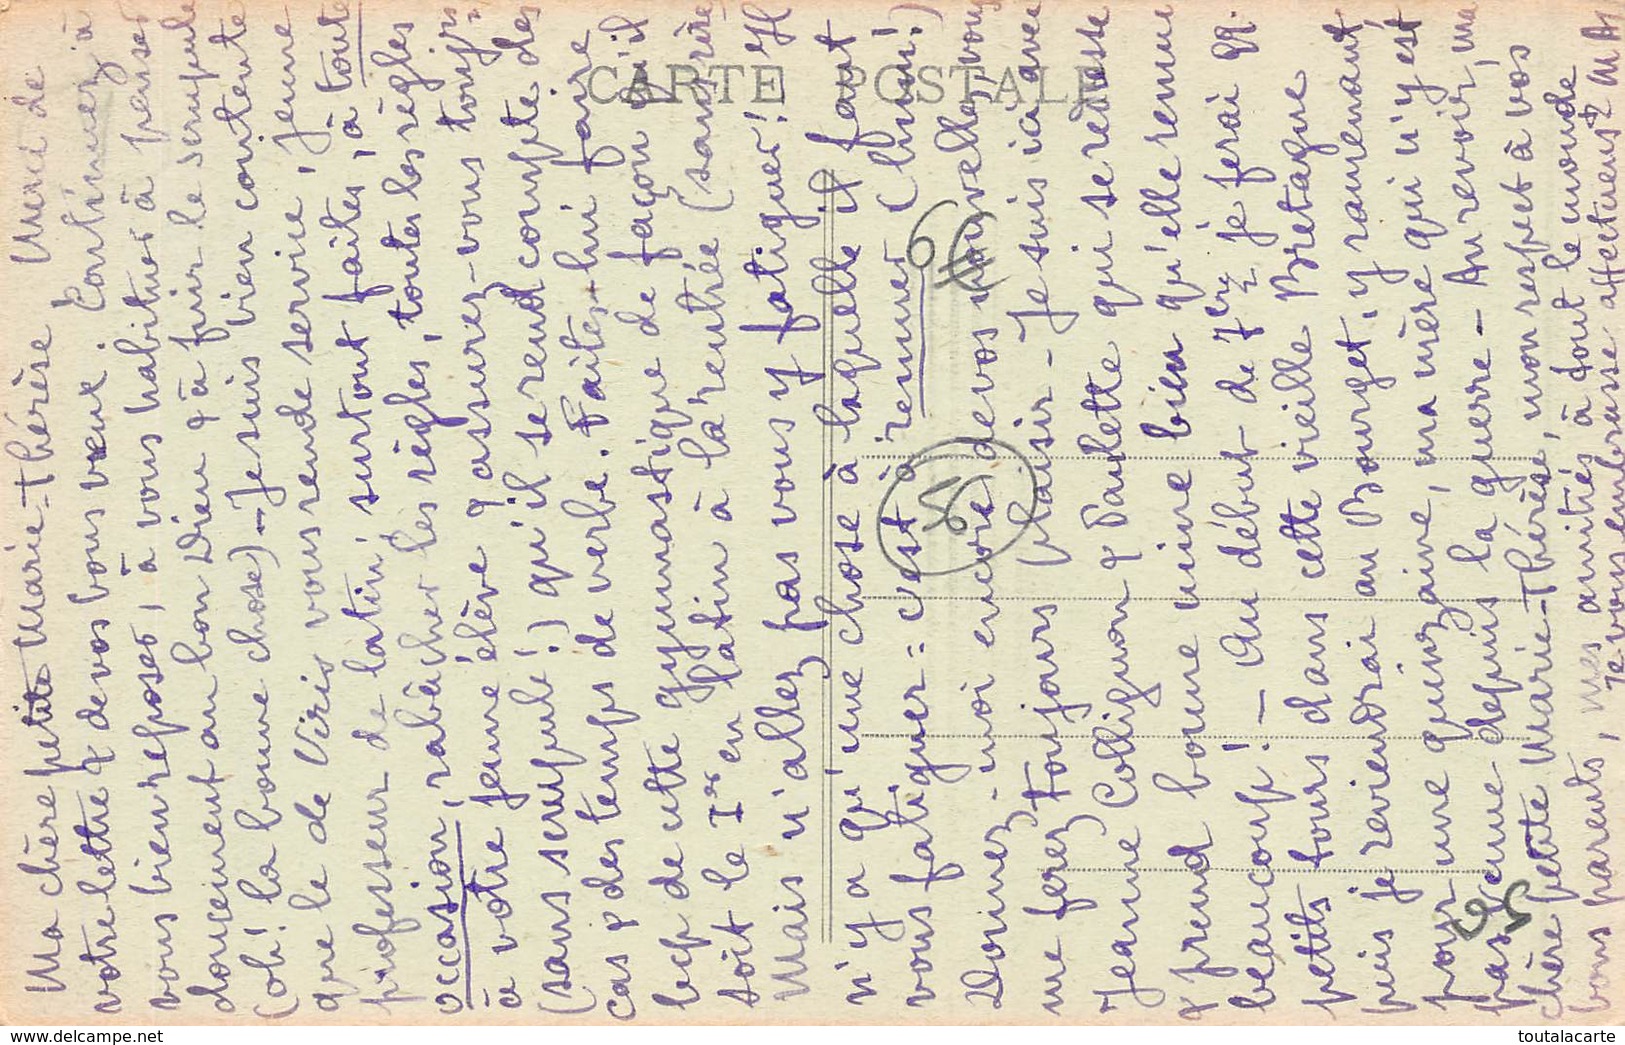 Ma chère petite Marie-Thérèse Merci de
votre lettre & de vos bons vœux. Continuez à
vous bien reposer, à vous habituer à penser
doucement au bon Dieu & à fuir le scrupule
(oh! la bonne chose) - Je suis bien contente
que le de Viris vous rende service, jeune
professeur de latin; surtout faites, à toute
occasion, rabâcher les règles, toutes les règles
à votre jeune élève & assurez-vous toujrs
(sans scrupule!) qu'il se rend compte des
cas & des temps de verbe. Faites-lui faire
bcp de cette gymnastique de façon qu'il
soit le 1er en latin à la rentrée (sans rire
Mais n'allez pas vous y fatiguer! Il
n'y a qu'une chose à laquelle il faut
vous fatiguer = c'est à remuer (hum!)
Donnez-moi encore de vos nouvelles, vous
me ferez toujours plaisir - Je suis ici avec
Jeanne Collignon & Paulette qui se redresse
& prend bonne mine bien qu'elle remue
beaucoup! - Au début de 7bre je ferai qq.
petits tours dans cette vieille Bretagne
puis je reviendrai au Bourget, y ramenant,
pour une quinzaine, ma mère qui n'y est
pas venue depuis la guerre - Au revoir, ma
chère petite Marie-Thérèse, mon respect à vos
bons parents, mes amitiés à tout le monde
Je vous embrasse affectueust
CARTE POSTALE
6€
toutalacarte
delcampe.net